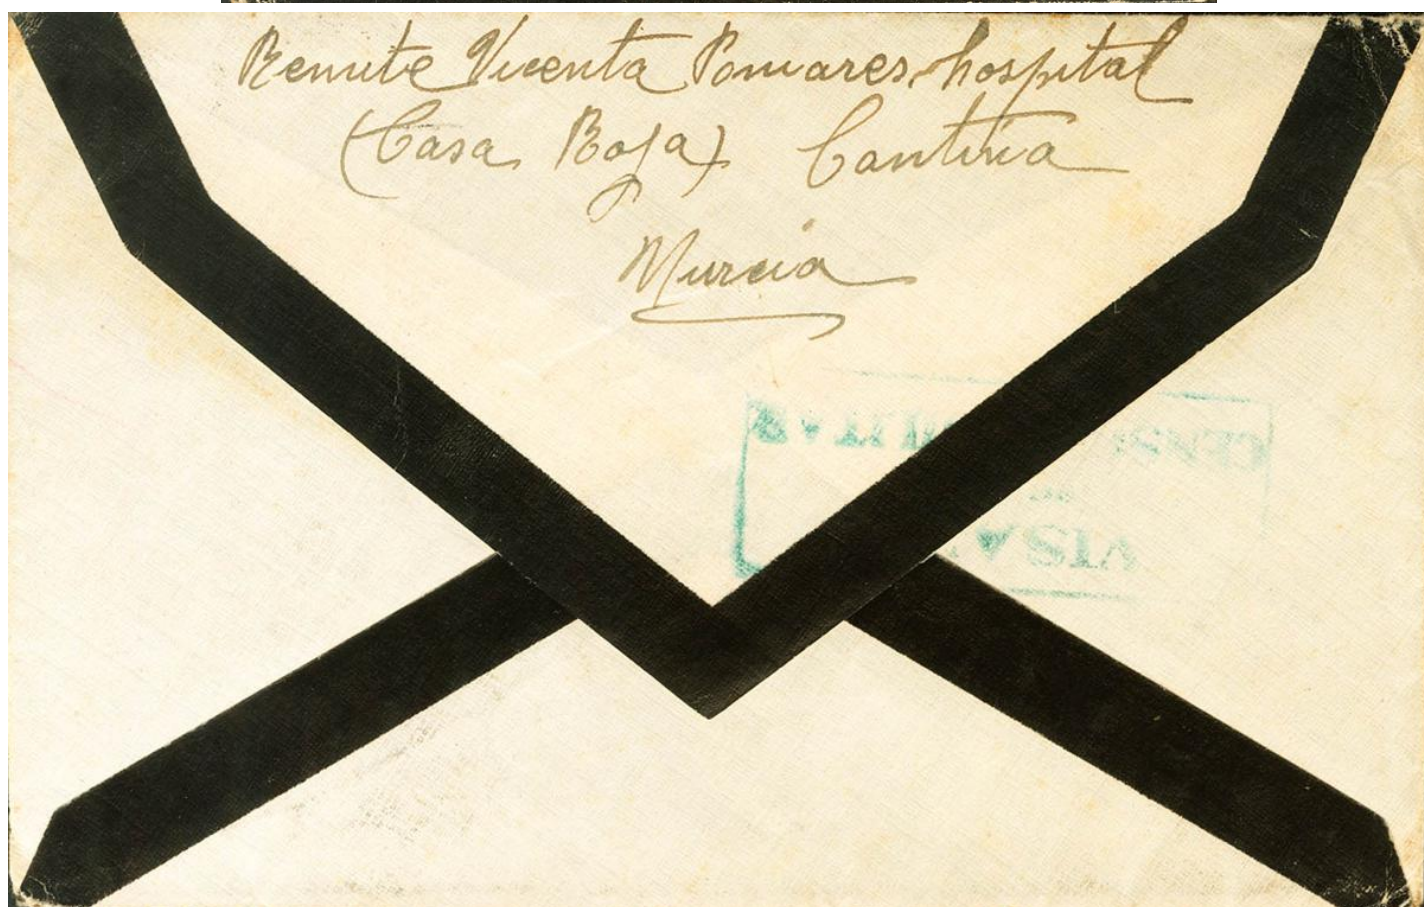 Remite Vicenta Pomares, hospital
(Casa Roja) Cantina
Murcia
VISA
CENS MILITAR